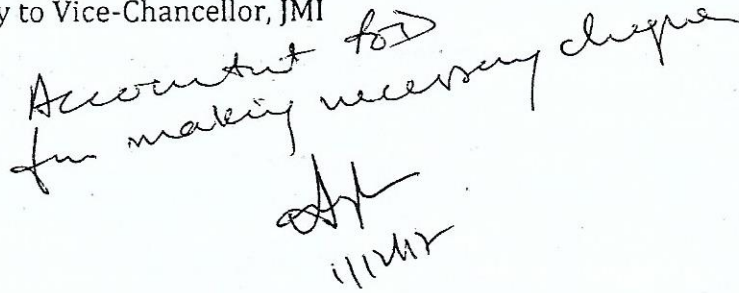 y to Vice-Chancellor, JMI
Accountant FOD
for making necessary cheque
1/12/12